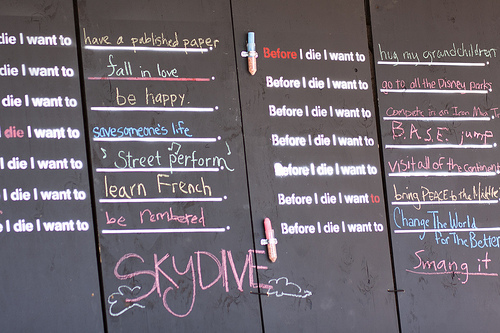 die I want to have a published paper.
die I want to fall in love.
die I want to be happy.
die I want to savesomeone's life.
I die I want to Street perform.
die I want to learn French.
I die I want to be rembered.
SKYDIVE
Before I die I want to hug my grandchildren
Before I die I want to go to all the Disney parks
Before I die I want to Compete in an Iron
Before I die I want to B.A.S.E. jump
Before I die I want to Visit all of the continent
Before I die I want to bring PEACE to the Middle
Before I die I want to Change The World
for The Better
Smang it